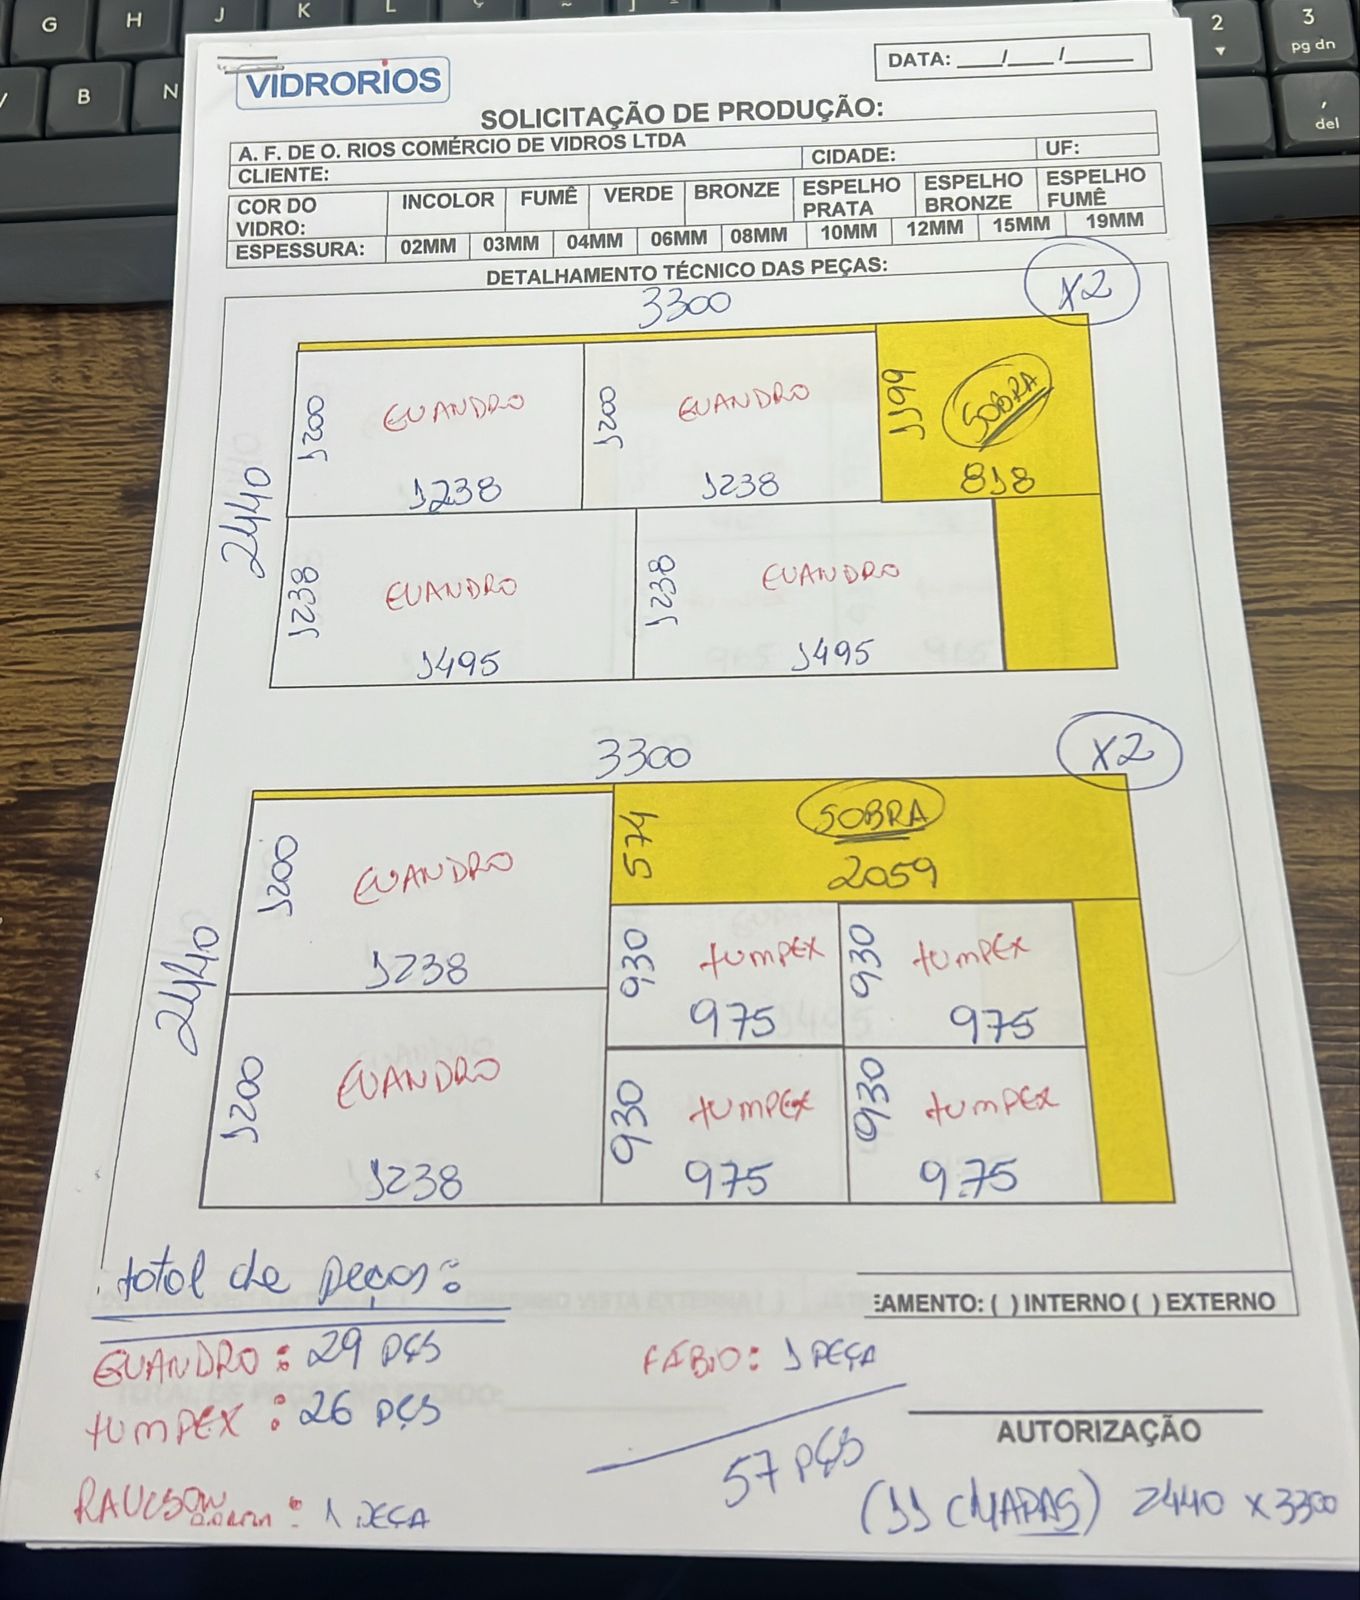 VIDRORIOS
DATA: ___/___/______
SOLICITAÇÃO DE PRODUÇÃO:
A. F. DE O. RIOS COMÉRCIO DE VIDROS LTDA
CLIENTE: CIDADE: UF:
COR DO VIDRO: INCOLOR FUMÊ VERDE BRONZE ESPELHO PRATA ESPELHO BRONZE ESPELHO FUMÊ
ESPESSURA: 02MM 03MM 04MM 06MM 08MM 10MM 12MM 15MM 19MM
DETALHAMENTO TÉCNICO DAS PEÇAS:
3300 X2
2440
1200 EVANDRO 1238
1200 EVANDRO 1238
1199 SOBRA 818
1238 EVANDRO 1495
1238 EVANDRO 1495
3300 X2
2440
1200 EVANDRO 1238
574 SOBRA 2059
930 tumpex 975
930 tumpex 975
1200 EVANDRO 1238
930 tumpex 975
930 tumpex 975
total de peças:
EVANDRO: 29 PÇS
tumpex: 26 PÇS
1 PEÇA
FÁBIO: 1 PEÇA
57 PÇS
EAMENTO: ( ) INTERNO ( ) EXTERNO
AUTORIZAÇÃO
(11 CHAPAS) 2440 x 3300
G
H
J
K
L
B
N
2
3
pg dn
,
del